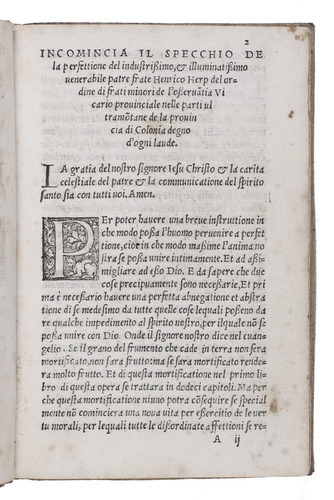 2
INCOMINCIA IL SPECCHIO DE
la perfettione del industrißimo, & illuminatißimo
venerabile patre frate Henrico Herp del or-
dine di frati minori de l'oßeruãtia Vi
cario prouinciale nelle parti ul
tramõtane de la prouin
cia di Colonia degno
d'ogni laude.
LA gratia del nostro signore Iesu Christo & la carita
celestiale del patre & la communicatione del spirito
santo sia con tutti uoi. Amen.
PEr poter hauere una breue instruttione in
che modo poßa l'huomo peruenire a perfet
tione, cioe in che modo maßime l'anima no
stra se poßa unire intimamente. Et ad aßi-
migliare ad eßo Dio. E da sapere che due
cose precipuamente sono neceßarie, Et prima
è neceßario hauere una perfetta abnegatione et abstra
tione di se medesimo da tutte quelle cose lequali poßeno da
re qualche impedimento al spirito nostro, per ilquale nõ se
poßa unire con Dio. Onde il signore nostro dice nel euan-
gelio. Se il grano del frumento che cade in terra non sera
mortificato, non sera fruttо ma se sara mortificato rende-
ra molto frutto. Et di questa mortificatione nel primo li-
bro di questa opera se trattara in dodeci capitoli. Ma per
che questa mortificatione niuno potra cõsequire se special
mente nõ cominciera una noua vita per eßercitio de le ver
tu morali, per lequali tutte le dißordinate affettioni se re-
A ij